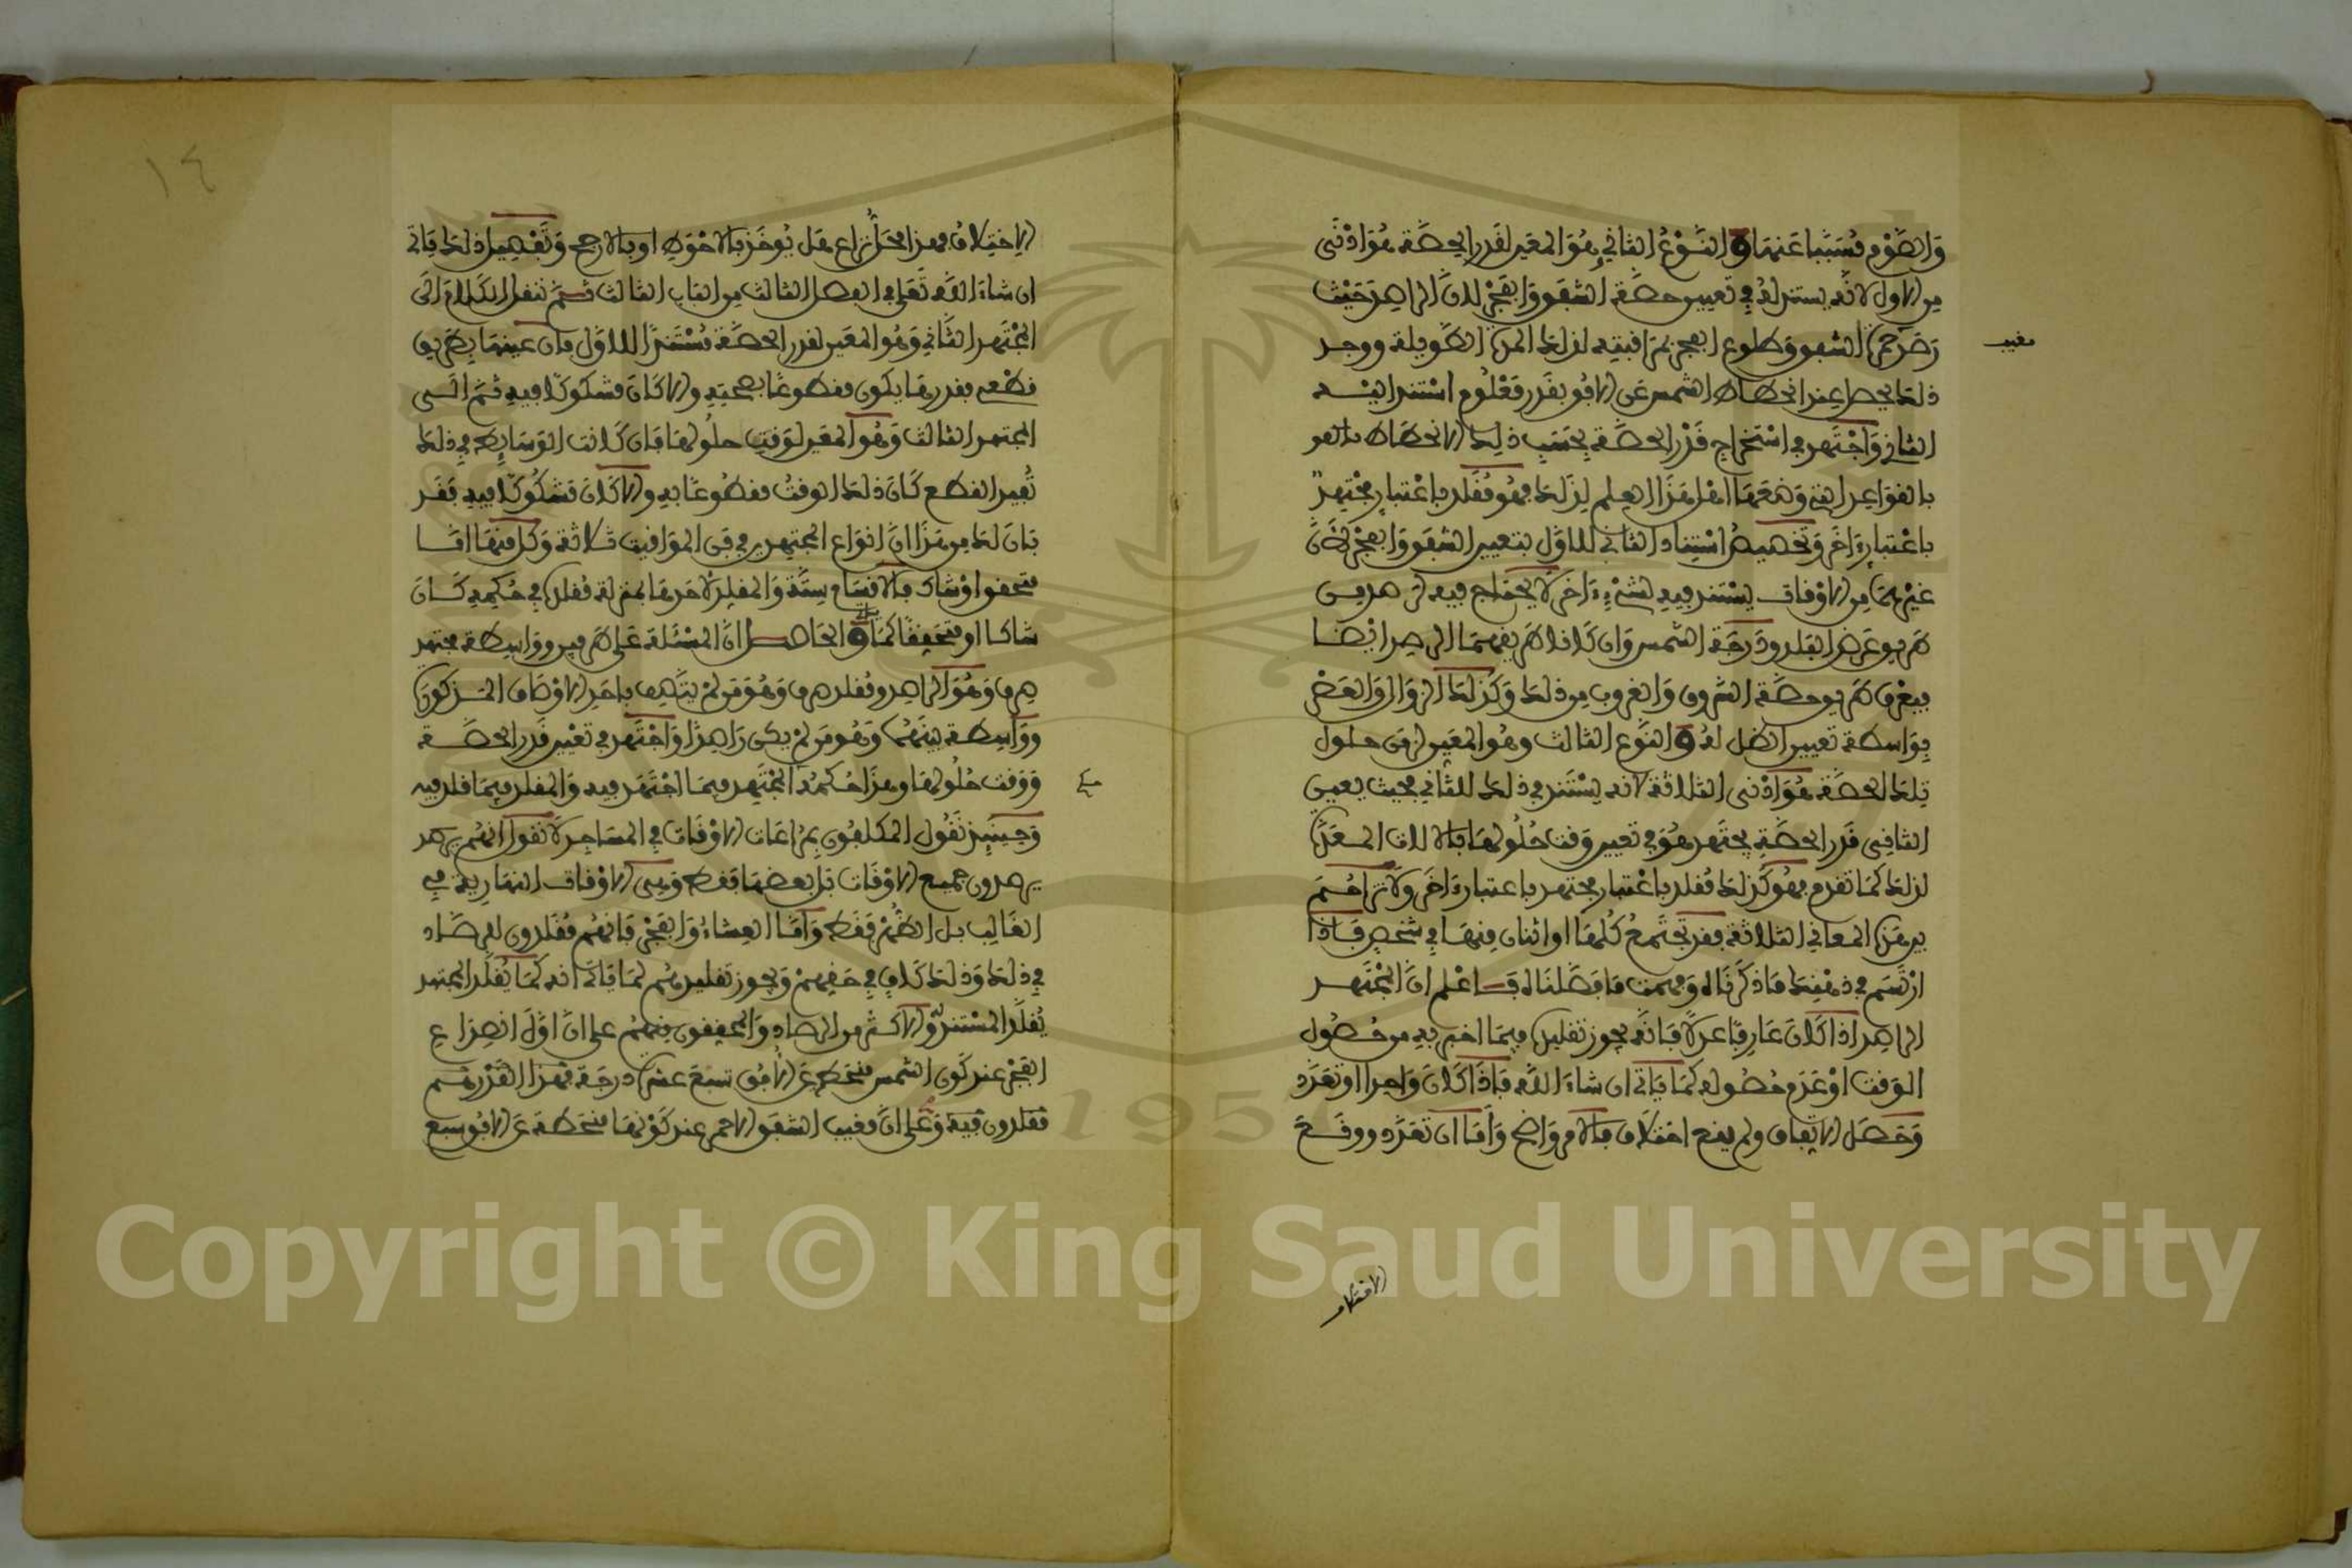 والصوم مسببا عنها والنوع الثاني هو المعين لقدر الحصة هو أدنى
من الأول لأنه يستند له في تعيين حصة الشفق والفجر لأن الراصد حيث
رصد حمرة الشفق وطلوع الفجر بمراقبته لذلك المدة الطويلة ووجد
مغيب
ذلك يحصل عند انحطاط الشمس عن الأفق بقدر معلوم استند اليه
الثاني واجتهد في استخراج قدر الحصة بحسب ذلك الانحطاط
بالقواعد التي وضعها اهل هذا العلم لذلك فهو مقلد باعتبار مجتهد
باعتبار اخر وتخصيص استناد الثاني للأول بتعيين الشفق والفجر لأن
غيرهما من الأوقات يستند فيه لشيء اخر لا يحتاج فيه الى هذين
هم هو عرض البلد ودرجة الشمس وان كانا هم يفهما الرصد ايضا
فيعرف هم هو حصة الشروق والغروب من ذلك وكذلك الزوال والعصر
بواسطة تعيين الظل له والنوع الثالث وهو المعين لزمن حلول
تلك الحصة هو أدنى الثلاثة لأنه يستند في ذلك للثاني بحيث يعين
الثاني قدر الحصة يجتهد هو في تعيين وقت حلولها بالآلات المعدة
لذلك كما تقدم فهو كذلك مقلد باعتبار مجتهد باعتبار اخر ولا تزاحم
بين هذه المعاني الثلاثة فقد تجتمع كلها او اثنان منها في شخص فإذا
ارتسم في ذهنك ما ذكرناه وفهمت ما فصلناه فاعلم ان المجتهد
الراصد اذا كان عارفا عدلا فإنه يجوز تقليده فيما اخبر به من حصول
الوقت او عدم حصوله كما يأتي ان شاء الله فإذا كان واحدا او تعدد
وحصل الاتفاق ولم يقع اختلاف فالأمر واضح وأما ان تعدد ووقع
الاختلاف
١٤
الاختلاف فهذا محل نزاع هل يؤخذ بالأحوط او بالأرجح وتفصيل ذلك يأتي
ان شاء الله تعلى في الفصل الثالث من الباب الثالث ثم ننقل الكلام الى
المجتهد الثاني وهو المعين لقدر الحصة مستندا للأول فإن عينها بطريق
قطعي بقدرها يكون مقطوعا بصحته وإلا كان مشكوكا فيه ثم الى
المجتهد الثالث وهو المعين لوقت حلولها فإن كانت الوسائط في ذلك
تفيد القطع كان ذلك الوقت مقطوعا به وإلا كان مشكوكا فيه فقد
بان لك من هذا ان انواع المجتهدين في فن المواقيت ثلاثة وكل منها اما
متحقق او شاك فالأقسام ستة والمقلد لأحدها بمنزلة مقلده في حكمه كان
شاكا او متحققا كما والحاصل ان المسئلة على طرفين وواسطة مجتهد
صرف وهو الراصد ومقلد صرف وهو من لم يتصف بأحد الأوصاف المذكورة
وواسطة بينهما وهو من لم يكن راصدا واجتهد في تعيين قدر الحصة
ووقت حلولها وهذا حكمه المجتهد فيما اجتهد فيه والمقلد فيما قلد فيه
وحينئذ نقول المكلفون بمراعات الأوقات في المساجد لا نقول انهم
يرصدون جميع الأوقات بل بعضها فقط وهي الأوقات النهارية في
الغالب بل الظهر فقط وأما العشاء والفجر فإنهم مقلدون للرصاد
في ذلك وذلك كاف في حقهم ويجوز تقليدهم لما يأتي انه كما يقلد المجتهد
يقلد المستند والأكثر من الرصاد والمحققون منهم على ان اول انصداع
الفجر عند كون الشمس منحطة عن الأفق تسع عشرة درجة فهذا القدر هم
مقلدون فيه وعلى ان مغيب الشفق الأحمر عند كونها منحطة عن الأفق سبع
Copyright © King Saud University
1957